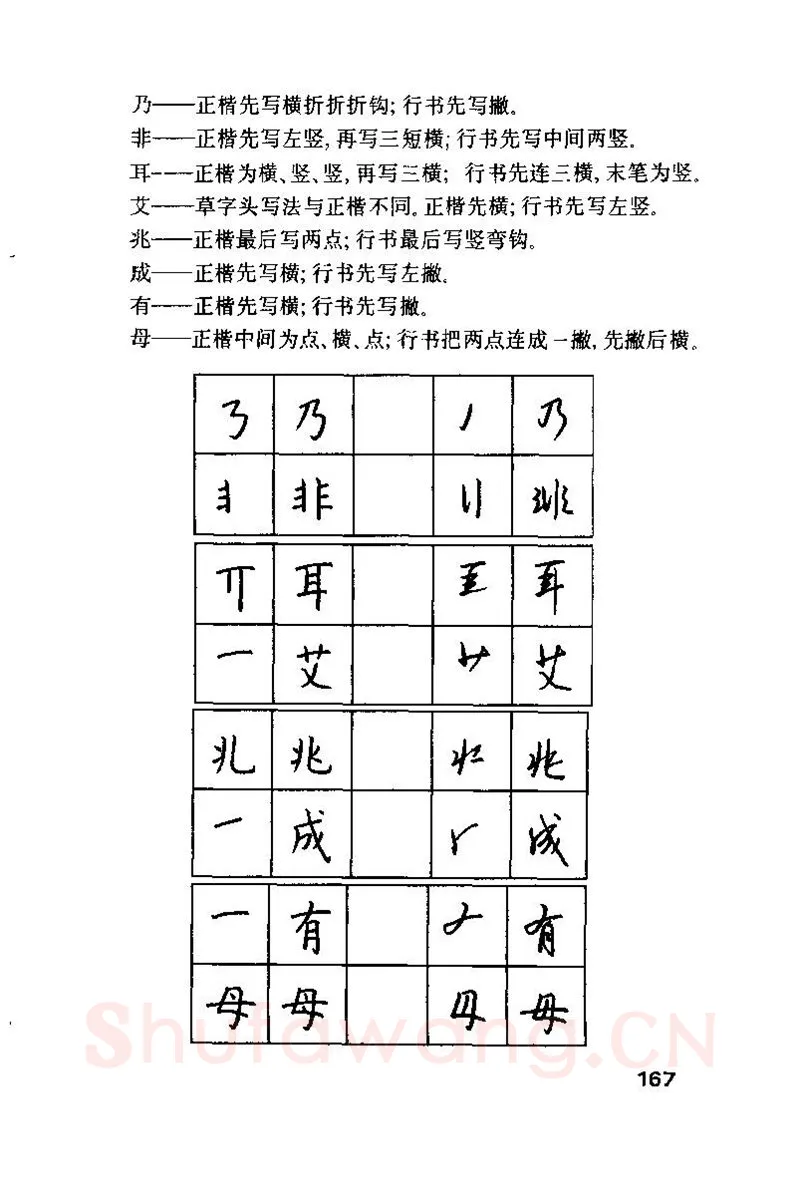 乃——正楷先写横折折折钩；行书先写撇。
非——正楷先写左竖，再写三短横；行书先写中间两竖。
耳——正楷为横、竖、竖，再写三横；行书先连三横，末笔为竖。
艾——草字头写法与正楷不同。正楷先横；行书先写左竖。
兆——正楷最后写两点；行书最后写竖弯钩。
成——正楷先写横；行书先写左撇。
有——正楷先写横；行书先写撇。
母——正楷中间为点、横、点；行书把两点连成一撇，先撇后横。
乃 丿 乃
非 非
耳 耳
一 艾 艾
兆 兆
一 成 成
一 有 有
母 母 母
Shufawang.CN
167